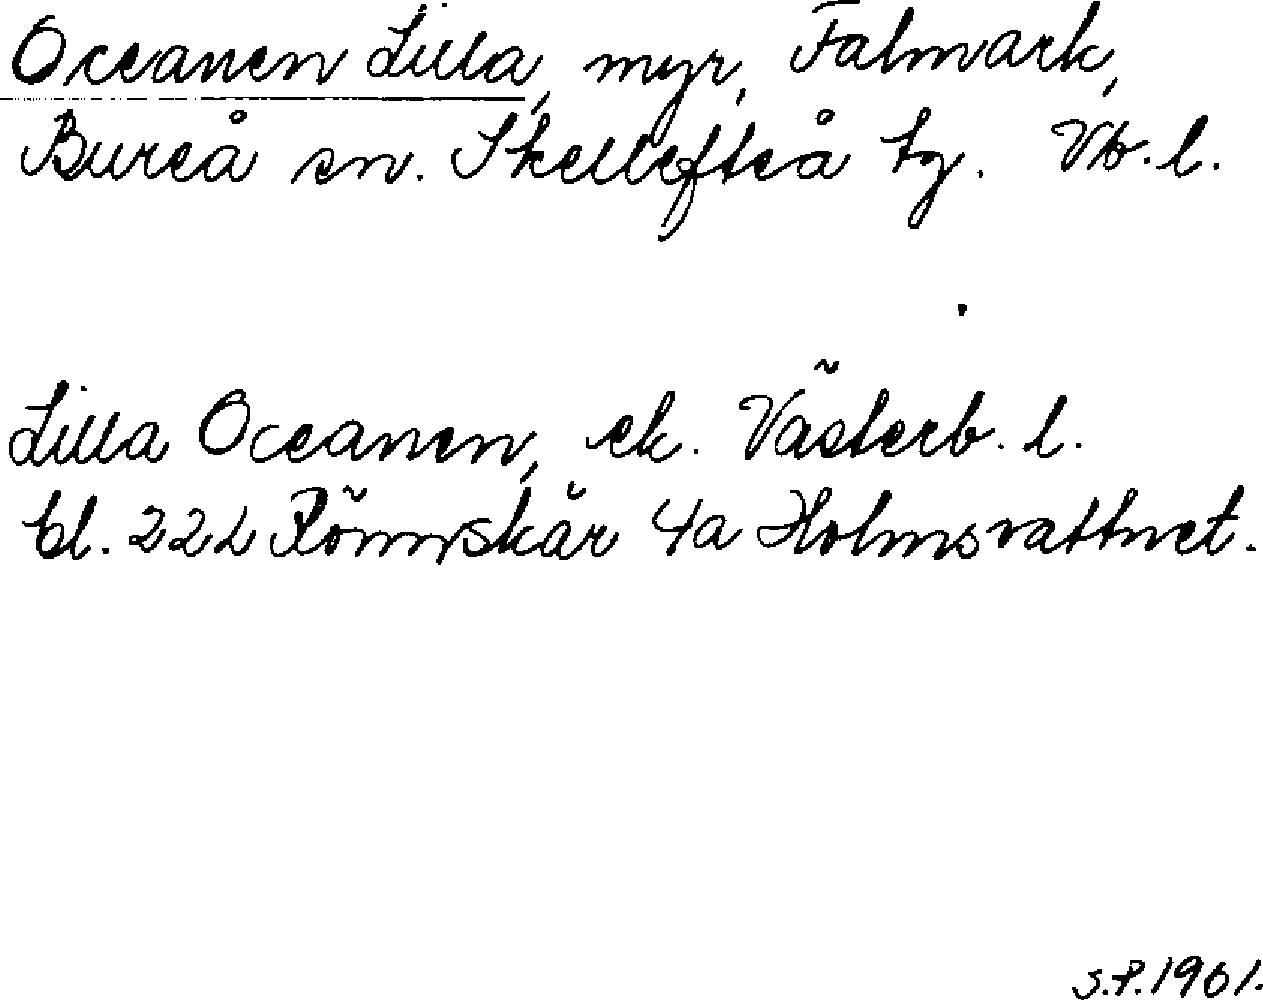 Oceanen Lilla, myr, Falmark,
Bureå sn. Skellefteå tg. Vb. l.
Lilla Oceanen, ek. Västerb. l.
bl. 222 Rönnskär 4a Holmsvattnet.
S.P. 1961.